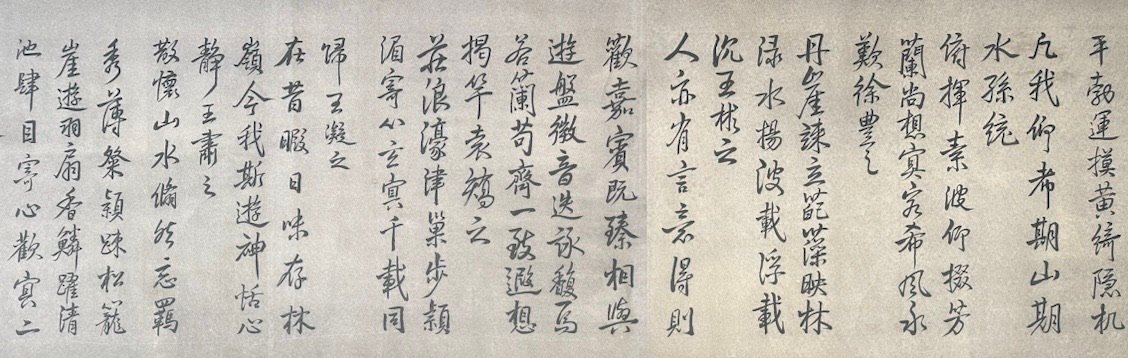 平勃運摸黃綺隱机
凡我仰希期山期
水孫統
俯揮素波仰掇芳
蘭尚想冥客希風永
歎徐豐之
丹崖竦立葩藻映林
渌水揚波載浮載
沉王彬之
人亦有言意得則
歡嘉賓既臻相與
遊盤微音迭詠馥焉
若蘭苟齊一致遐想
揭竿袁嶠之
莊浪濠津巢步潁
湄寄心立冥千載同
歸王凝之
在昔暇日味存林
嶺今我斯遊神恬心
靜王肅之
散懷山水翛然忘羈
秀薄粲穎踈松籠
崖遊羽扇香鱗躍清
池肆目寄心歡冥二